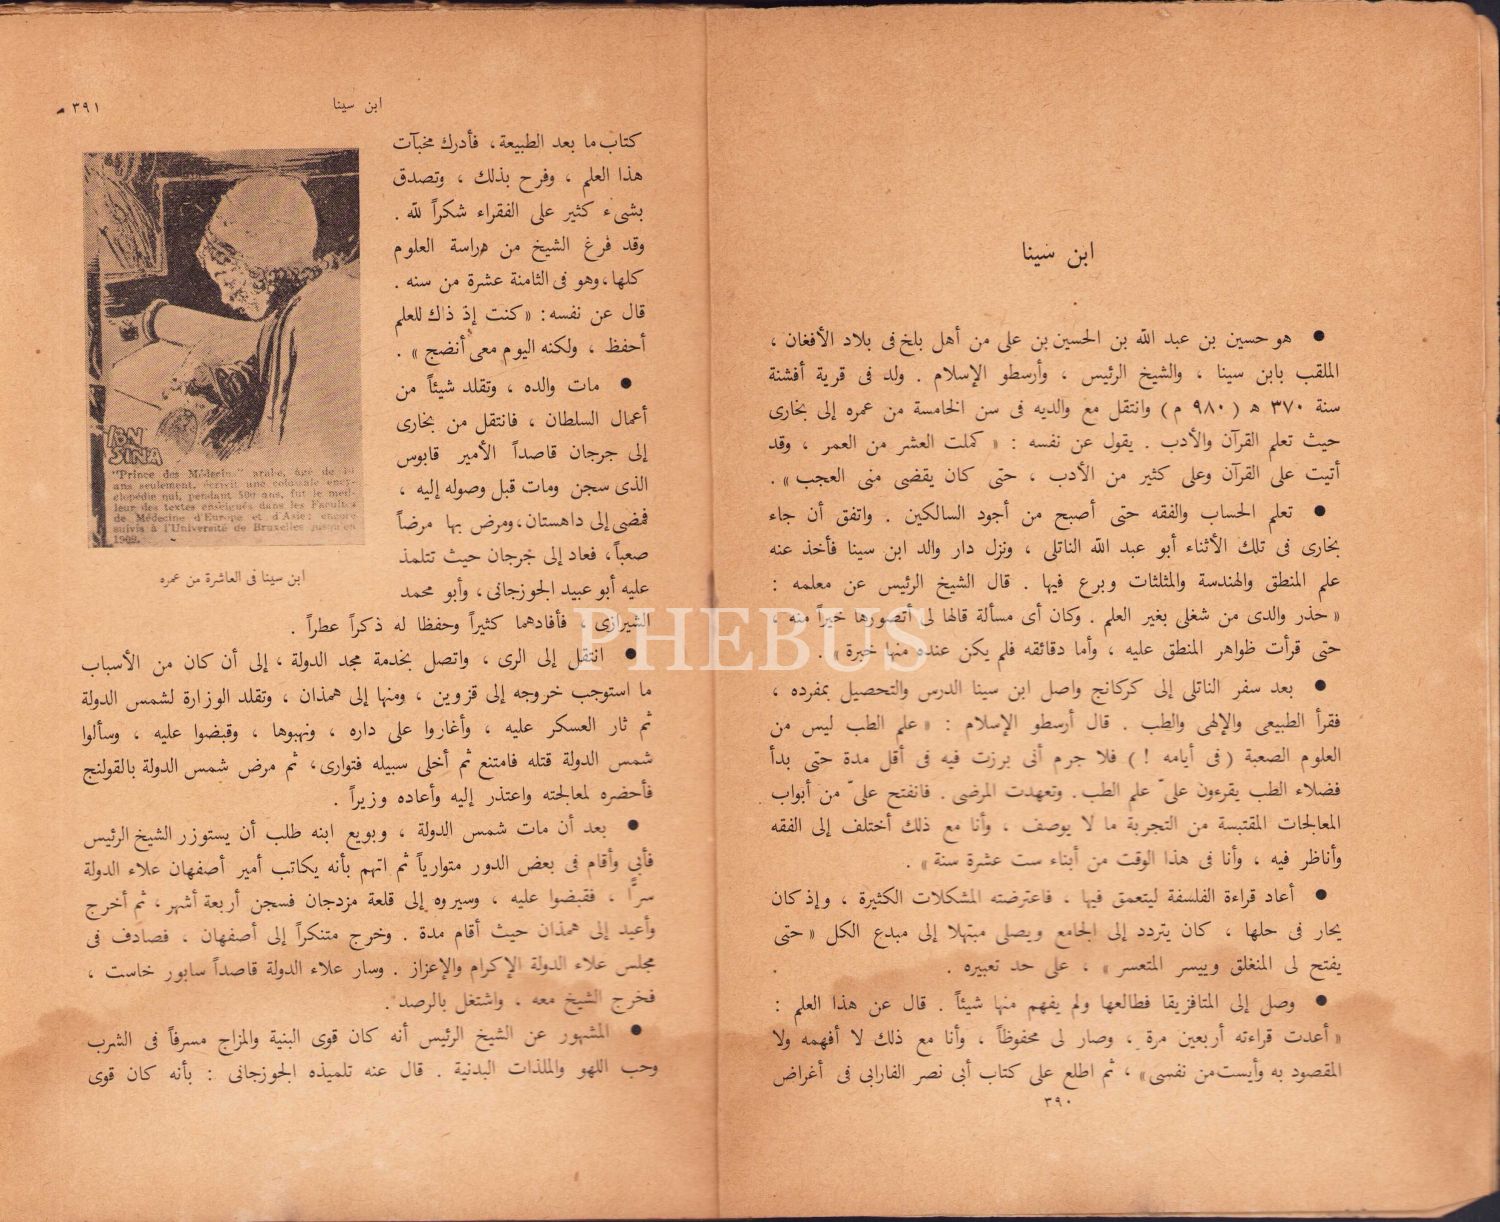 ابن سينا
● هو حسين بن عبد الله بن الحسين بن على من أهل بلخ فى بلاد الأفغان ،
الملقب بابن سينا ، والشيخ الرئيس ، وأرسطو الإسلام . ولد فى قرية أفشنة
سنة ٣٧٠ ه ( ٩٨٠ م ) وانتقل مع والديه فى سن الخامسة من عمره إلى بخارى
حيث تعلم القرآن والأدب . يقول عن نفسه : « كملت العشر من العمر ، وقد
أتيت على القرآن وعلى كثير من الأدب ، حتى كان يقضى منى العجب » .
● تعلم الحساب والفقه حتى أصبح من أجود السالكين . واتفق أن جاء
بخارى فى تلك الأثناء أبو عبد الله الناتلى ، ونزل دار والد ابن سينا فأخذ عنه
علم المنطق والهندسة والمثلثات وبرع فيها . قال الشيخ الرئيس عن معلمه :
« حذر والدى من شغلى بغير العلم . وكان أى مسألة قالها لى أتصورها خيراً منه ،
حتى قرأت ظواهر المنطق عليه ، وأما دقائقه فلم يكن عنده منها خبرة » .
● بعد سفر الناتلى إلى كركانج واصل ابن سينا الدرس والتحصيل بمفرده ،
فقرأ الطبيعى والإلهى والطب . قال أرسطو الإسلام : « علم الطب ليس من
العلوم الصعبة ( فى أيامه ! ) فلا جرم أنى برزت فيه فى أقل مدة حتى بدأ
فضلاء الطب يقرءون علىّ علم الطب . وتعهدت المرضى . فانفتح علىّ من أبواب
المعالجات المقتبسة من التجربة ما لا يوصف ، وأنا مع ذلك أختلف إلى الفقه
وأناظر فيه ، وأنا فى هذا الوقت من أبناء ست عشرة سنة » .
● أعاد قراءة الفلسفة ليتعمق فيها ، فاعترضته المشكلات الكثيرة ، وإذ كان
يحار فى حلها ، كان يتردد إلى الجامع ويصلى مبتهلا إلى مبدع الكل « حتى
يفتح لى المنغلق وييسر المتعسر » ، على حد تعبيره .
● وصل إلى المتافزيقا فطالعها ولم يفهم منها شيئاً . قال عن هذا العلم :
« أعدت قراءته أربعين مرة ، وصار لى محفوظاً ، وأنا مع ذلك لا أفهمه ولا
المقصود به وأيست من نفسى » ، ثم اطلع على كتاب أبى نصر الفارابى فى أغراض
٣٩٠
ابن سينا
٣٩١
كتاب ما بعد الطبيعة ، فأدرك مخبآت
هذا العلم ، وفرح بذلك ، وتصدق
بشىء كثير على الفقراء شكراً لله .
وقد فرغ الشيخ من دراسة العلوم
كلها ، وهو فى الثامنة عشرة من سنه .
قال عن نفسه : « كنت إذ ذاك للعلم
أحفظ ، ولكنه اليوم معى أنضج » .
● مات والده ، وتقلد شيئاً من
أعمال السلطان ، فانتقل من بخارى
إلى جرجان قاصداً الأمير قابوس
الذى سجن ومات قبل وصوله إليه ،
فمضى إلى داهستان ، ومرض بها مرضاً
صعباً ، فعاد إلى جرجان حيث تتلمذ
عليه أبو عبيد الجوزجانى ، وأبو محمد
الشيرازى ، فأفادهما كثيراً وحفظا له ذكراً عطراً .
● انتقل إلى الرى ، واتصل بخدمة مجد الدولة ، إلى أن كان من الأسباب
ما استوجب خروجه إلى قزوين ، ومنها إلى همذان ، وتقلد الوزارة لشمس الدولة
ثم ثار العسكر عليه ، وأغاروا على داره ، ونهبوها ، وقبضوا عليه ، وسألوا
شمس الدولة قتله فامتنع ثم أخلى سبيله فتوارى ، ثم مرض شمس الدولة بالقولنج
فأحضره لمعالجته واعتذر إليه وأعاده وزيراً .
● بعد أن مات شمس الدولة ، وبويع ابنه طلب أن يستوزر الشيخ الرئيس
فأبى وأقام فى بعض الدور متوارياً ثم اتهم بأنه يكاتب أمير أصفهان علاء الدولة
سرًّا ، فقبضوا عليه ، وسيروه إلى قلعة مزدجان فسجن أربعة أشهر ، ثم أخرج
وأعيد إلى همذان حيث أقام مدة . وخرج متنكراً إلى أصفهان ، فصادف فى
مجلس علاء الدولة الإكرام والإعزاز . وسار علاء الدولة قاصداً سابور خاست ،
فخرج الشيخ معه ، واشتغل بالرصد .
● المشهور عن الشيخ الرئيس أنه كان قوى البنية والمزاج مسرفاً فى الشرب
وحب اللهو والملذات البدنية . قال عنه تلميذه الجوزجانى : بأنه كان قوى
IBN
SINA
"Prince des Médecins" arabe, âgé de 10
ans seulement, écrivit une colossale ency-
clopédie qui, pendant 500 ans, fut le meil-
leur des textes enseignés dans les Facultés
de Médecine d'Europe et d'Asie; encore
suivis à l'Université de Bruxelles jusqu'en
1909.
ابن سينا فى العاشرة من عمره
PHEBUS